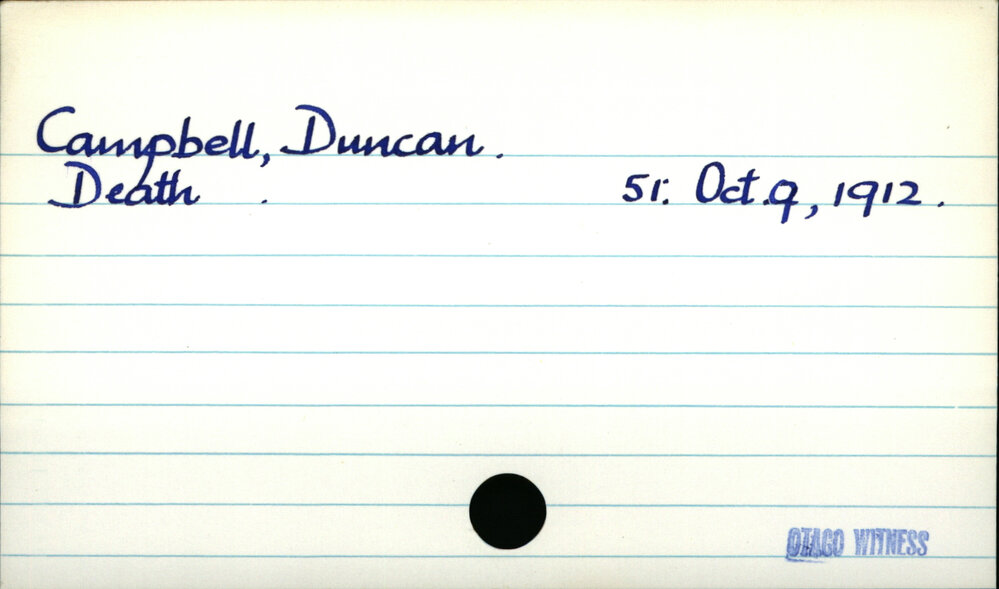 Campbell, Duncan.
Death . 51: Oct.9, 1912.
OTAGO WITNESS